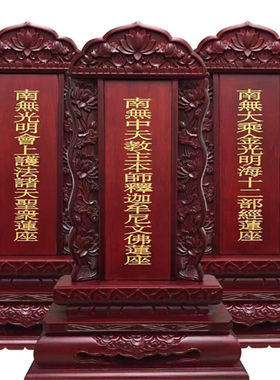 南無大乘金光明海十二部經蓮座
南無中天教主本師釋迦牟尼文佛蓮座
南無光明會上護法諸天聖衆蓮座